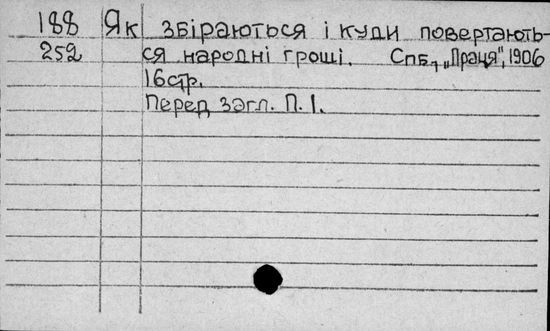 188 Як збіраються і куди повертають-
252 ся народні гроші. Спб., „Праця", 1906
16 стр.
Перед загл. П. I.